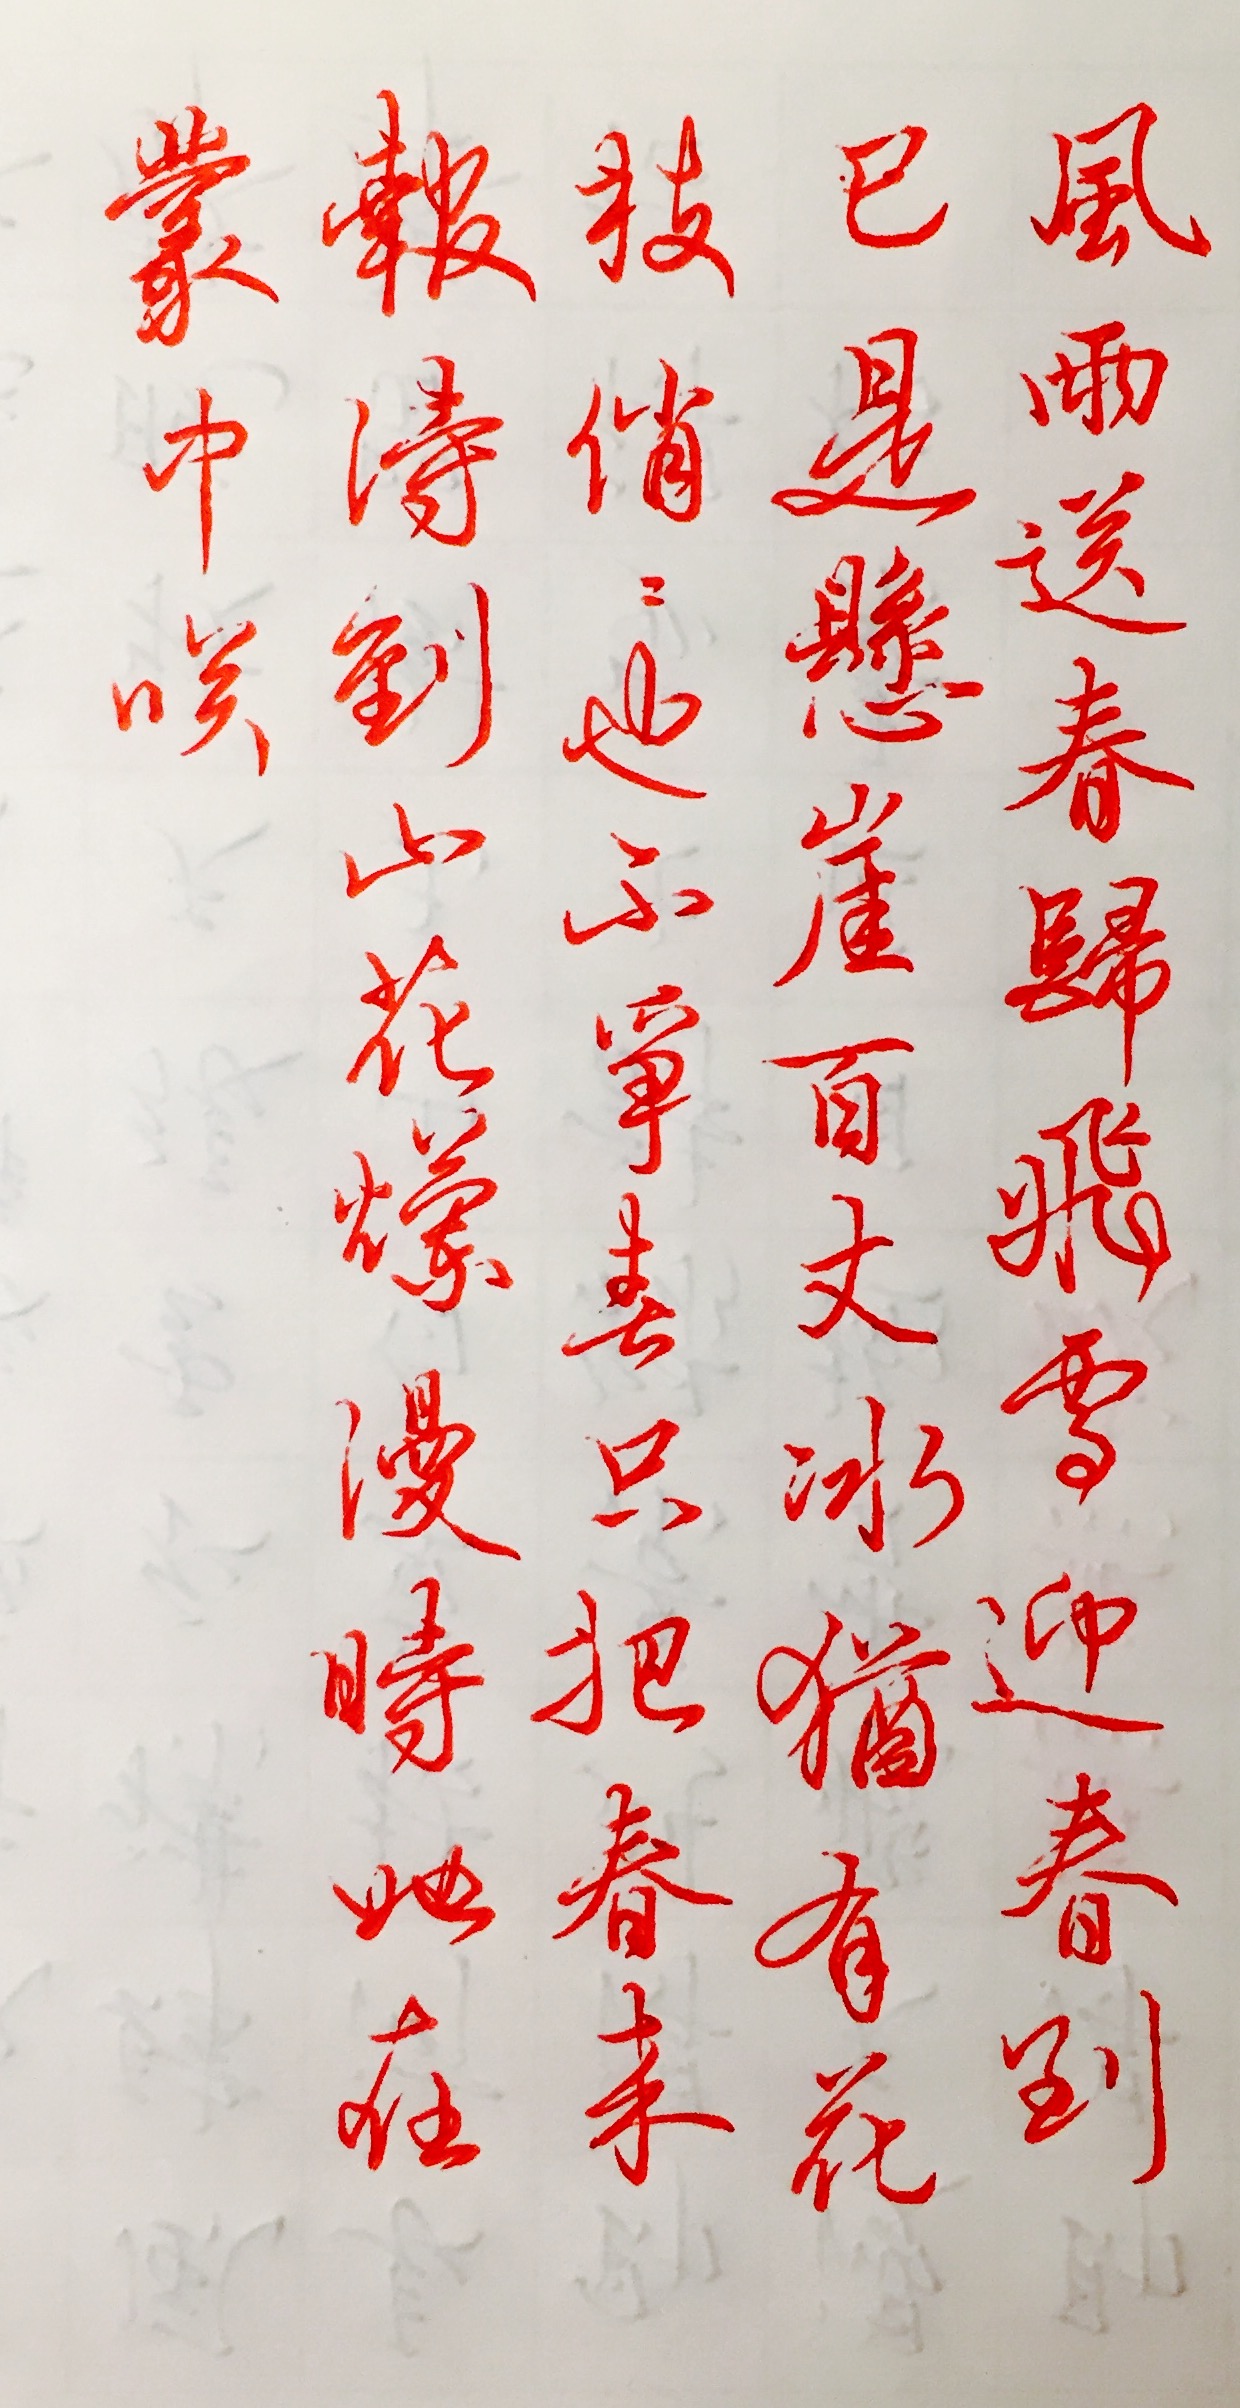 風雨送春歸飛雪迎春到
已是懸崖百丈冰猶有花
枝俏〻也不爭春只把春来
報待到山花爛漫時她在
叢中咲